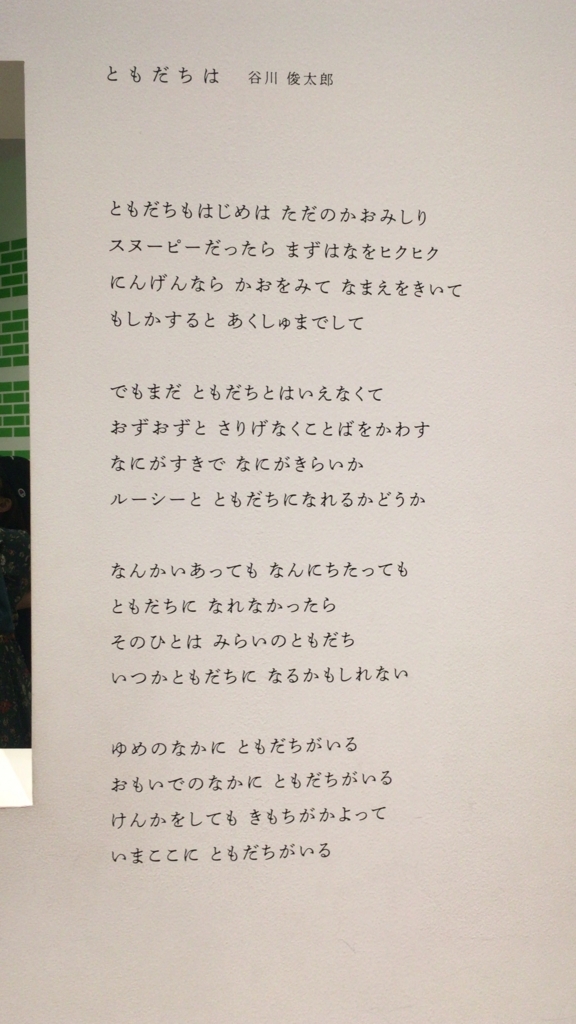 ともだちは 谷川 俊太郎
ともだちもはじめは ただのかおみしり
スヌーピーだったら まずはなをヒクヒク
にんげんなら かおをみて なまえをきいて
もしかすると あくしゅまでして
でもまだ ともだちとはいえなくて
おずおずと さりげなくことばをかわす
なにがすきで なにがきらいか
ルーシーと ともだちになれるかどうか
なんかいあっても なんにちたっても
ともだちに なれなかったら
そのひとは みらいのともだち
いつかともだちに なるかもしれない
ゆめのなかに ともだちがいる
おもいでのなかに ともだちがいる
けんかをしても きもちがかよって
いまここに ともだちがいる